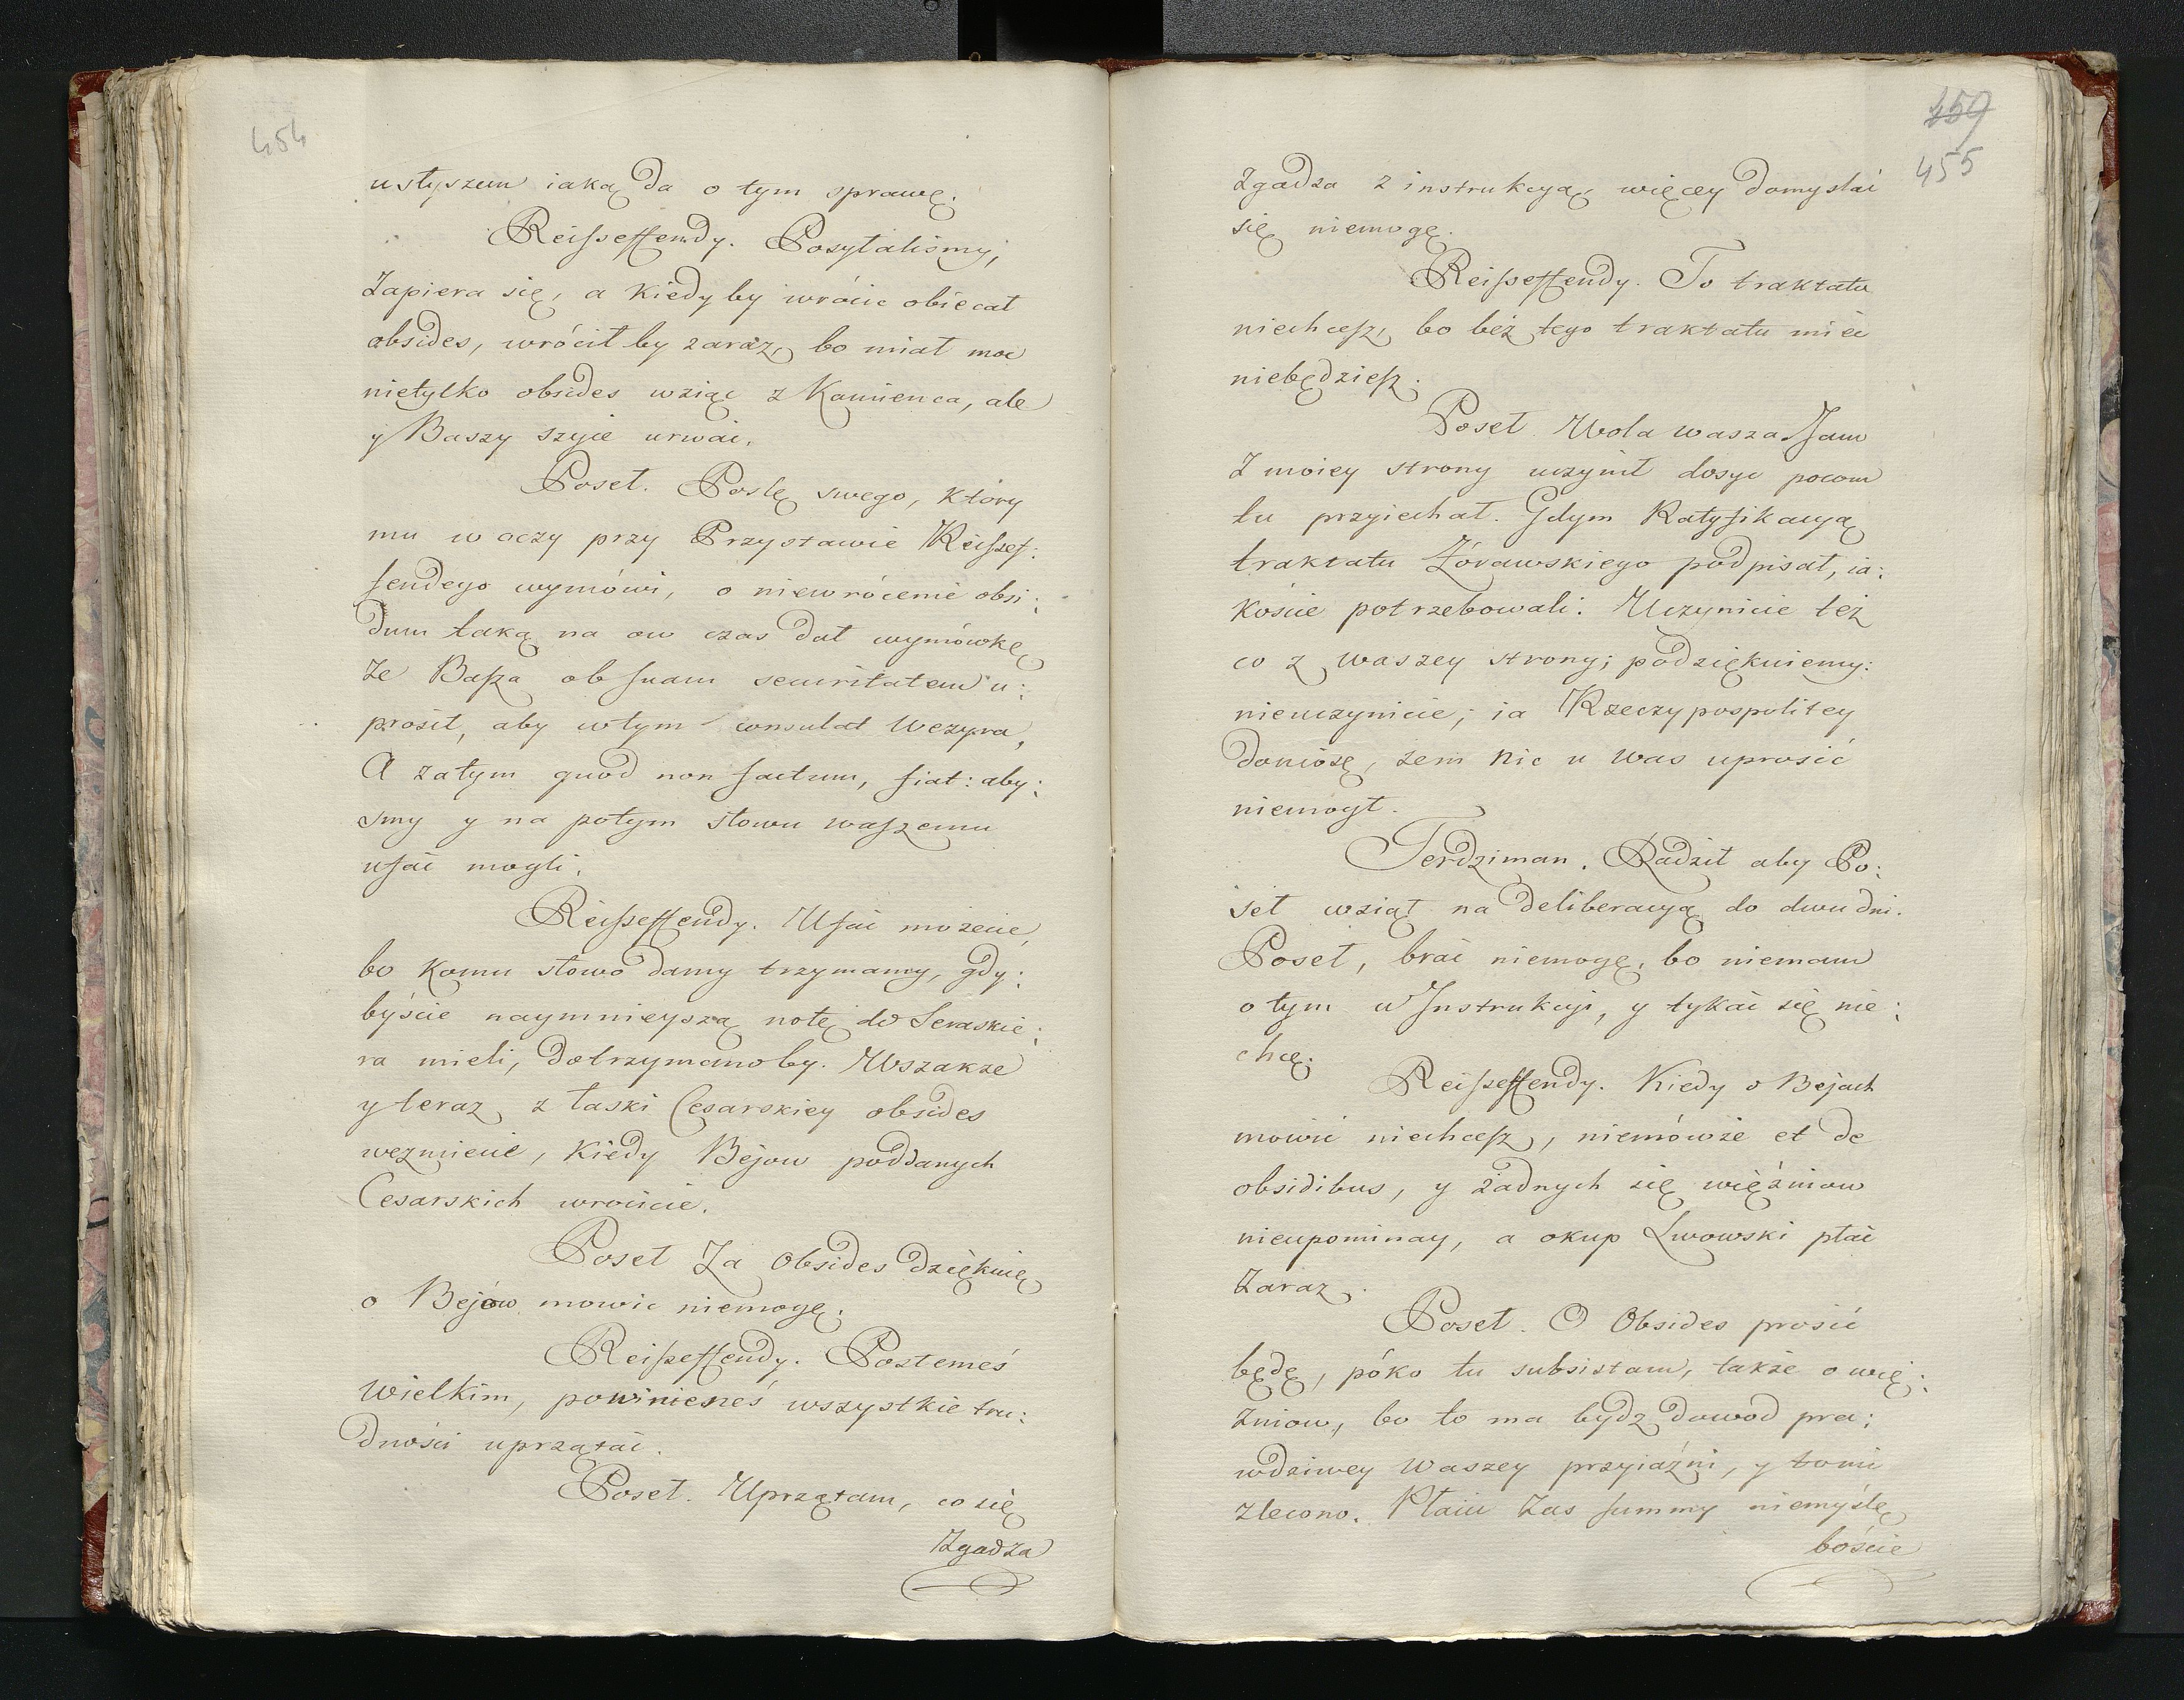 454
usłyszem iaką da o tym sprawę.
Reisseffendy. Posyłaliśmy,
zapiera się, a kiedyby wrócic obiecał
obsides, wróciłby zaraz, bo miał moc
nietylko obsides wziąc z Kamienca, ale
y Baszy szyie urwać.
Poseł. Poslę swego, który
mu w oczy przy Przystawie Reissef:
fendego wymówi, o niewrócenie obsi:
dum taką na ow czas dał wymówkę
że Basza ob suam securitatem u:
prosił, aby wtym consulat Wezyra,
A zatym quod non factum, fiat: aby:
smy y na potym słowu waszemu
ufać mogli.
Reisseffendy. Ufać możecie,
bo komu słowo damy trzymamy, gdy:
byście naymnieyszą notę do Seraskie:
ra mieli, dotrzymanoby. Wszakże
y teraz z łaski Cesarskiey obsides
wezmiecie, kiedy Bejow poddanych
Cesarskich wrócicie.
Poseł Za Obsides dziękuię
o Bejów mowic niemogę.
Reisseffendy. Posłemeś
Wielkim, powinieneś wszystkie tru:
dności uprzątać.
Poseł. Uprzątam, co się
zgadza
459
455
zgadza z instrukcyą, więcey domyslać
się niemogę.
Reisseffendy. To traktatu
niechcesz, bo bez tego traktatu mieć
niebędziesz.
Poseł. Wola wasza Jam
z moiey strony uczynił dosyc pocom
tu przyiechał. Gdym Ratyfikacyą
traktatu Żórawskiego podpisał, ia:
koście potrzebowali. Uczynicie też
co z waszey strony; podziękuiemy:
nieuczynicie; ia Rzeczypospolitey
doniosę, zem nic u was uprosić
niemogł.
Terdziman. Radził aby Po:
seł wziął na deliberacyą do dwu dni.
Poseł, brać niemogę, bo niemam
o tym w Instrukcji, y tykać się nie:
chcę.
Reisseffendy. Kiedy o Bejach
mowić niechcesz, niemówże et de
obsidibus, y żadnych się więźniow
nieupominay, a okup Lwowski płać
zaraz.
Poseł. O Obsides prosić
będę, póko tu subsistam, także o wię:
zniow, bo to ma bydz dowod pra:
wdziwey Waszey przyiaźni, y to mi
zlecono. Płacić zas summy niemyślę
bóście